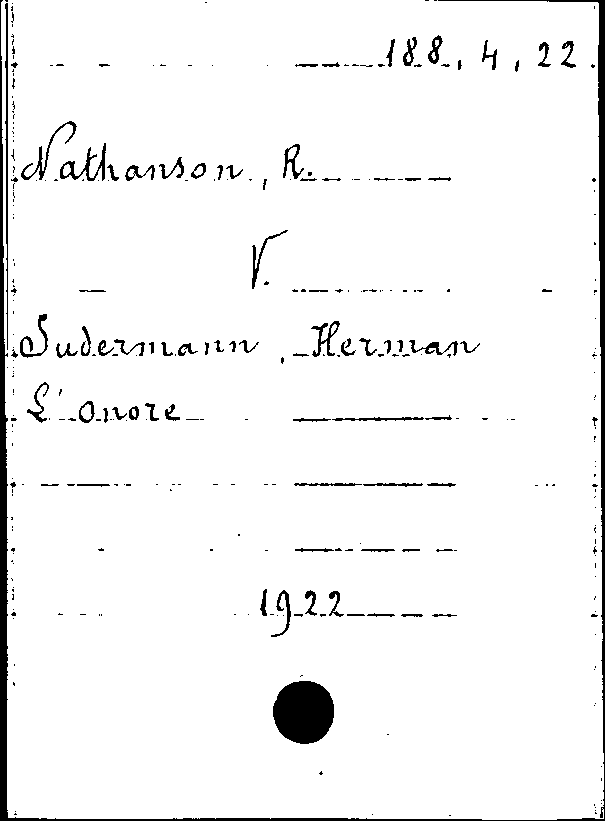 188.4.22
Nathanson, R.
V.
Sudermann, Herman
L'onore
1922